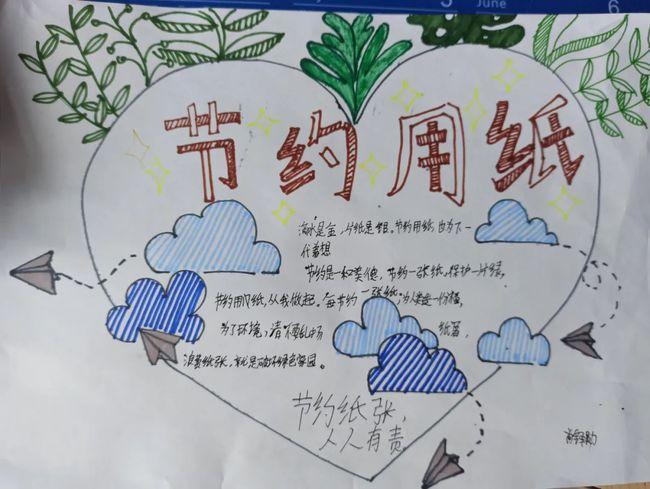 June
6
节约用纸
滴水是金，片纸是银。节约用纸也为下一
代着想
节约是一种美德，节约一张纸，保护一片绿。
节约用纸，从我做起。每节约一张纸，为人类造一份福。
为了环境，请不要乱扔 纸屑，
浪费纸张，就是破坏绿色家园。
节约纸张，
人人有责